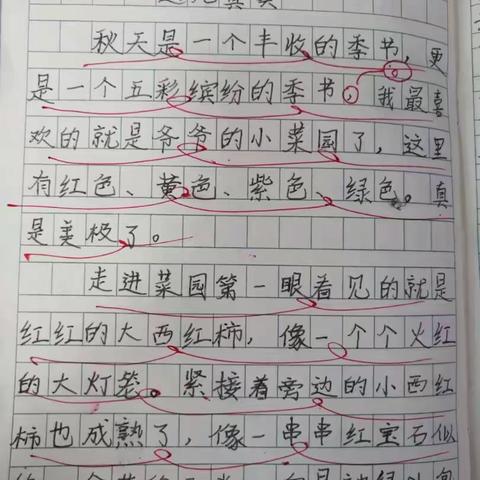 秋天是一个丰收的季书,更
是一个五彩缤纷的季书,我最喜
欢的就是爷爷的小菜园了,这里
有红色、黄色、紫色、绿色。真
是美极了。
走进菜园第一眼看见的就是
红红的大西红柿,像一个个火红
的大灯笼。紧接着旁边的小西红
柿也成熟了,像一串串红宝石似